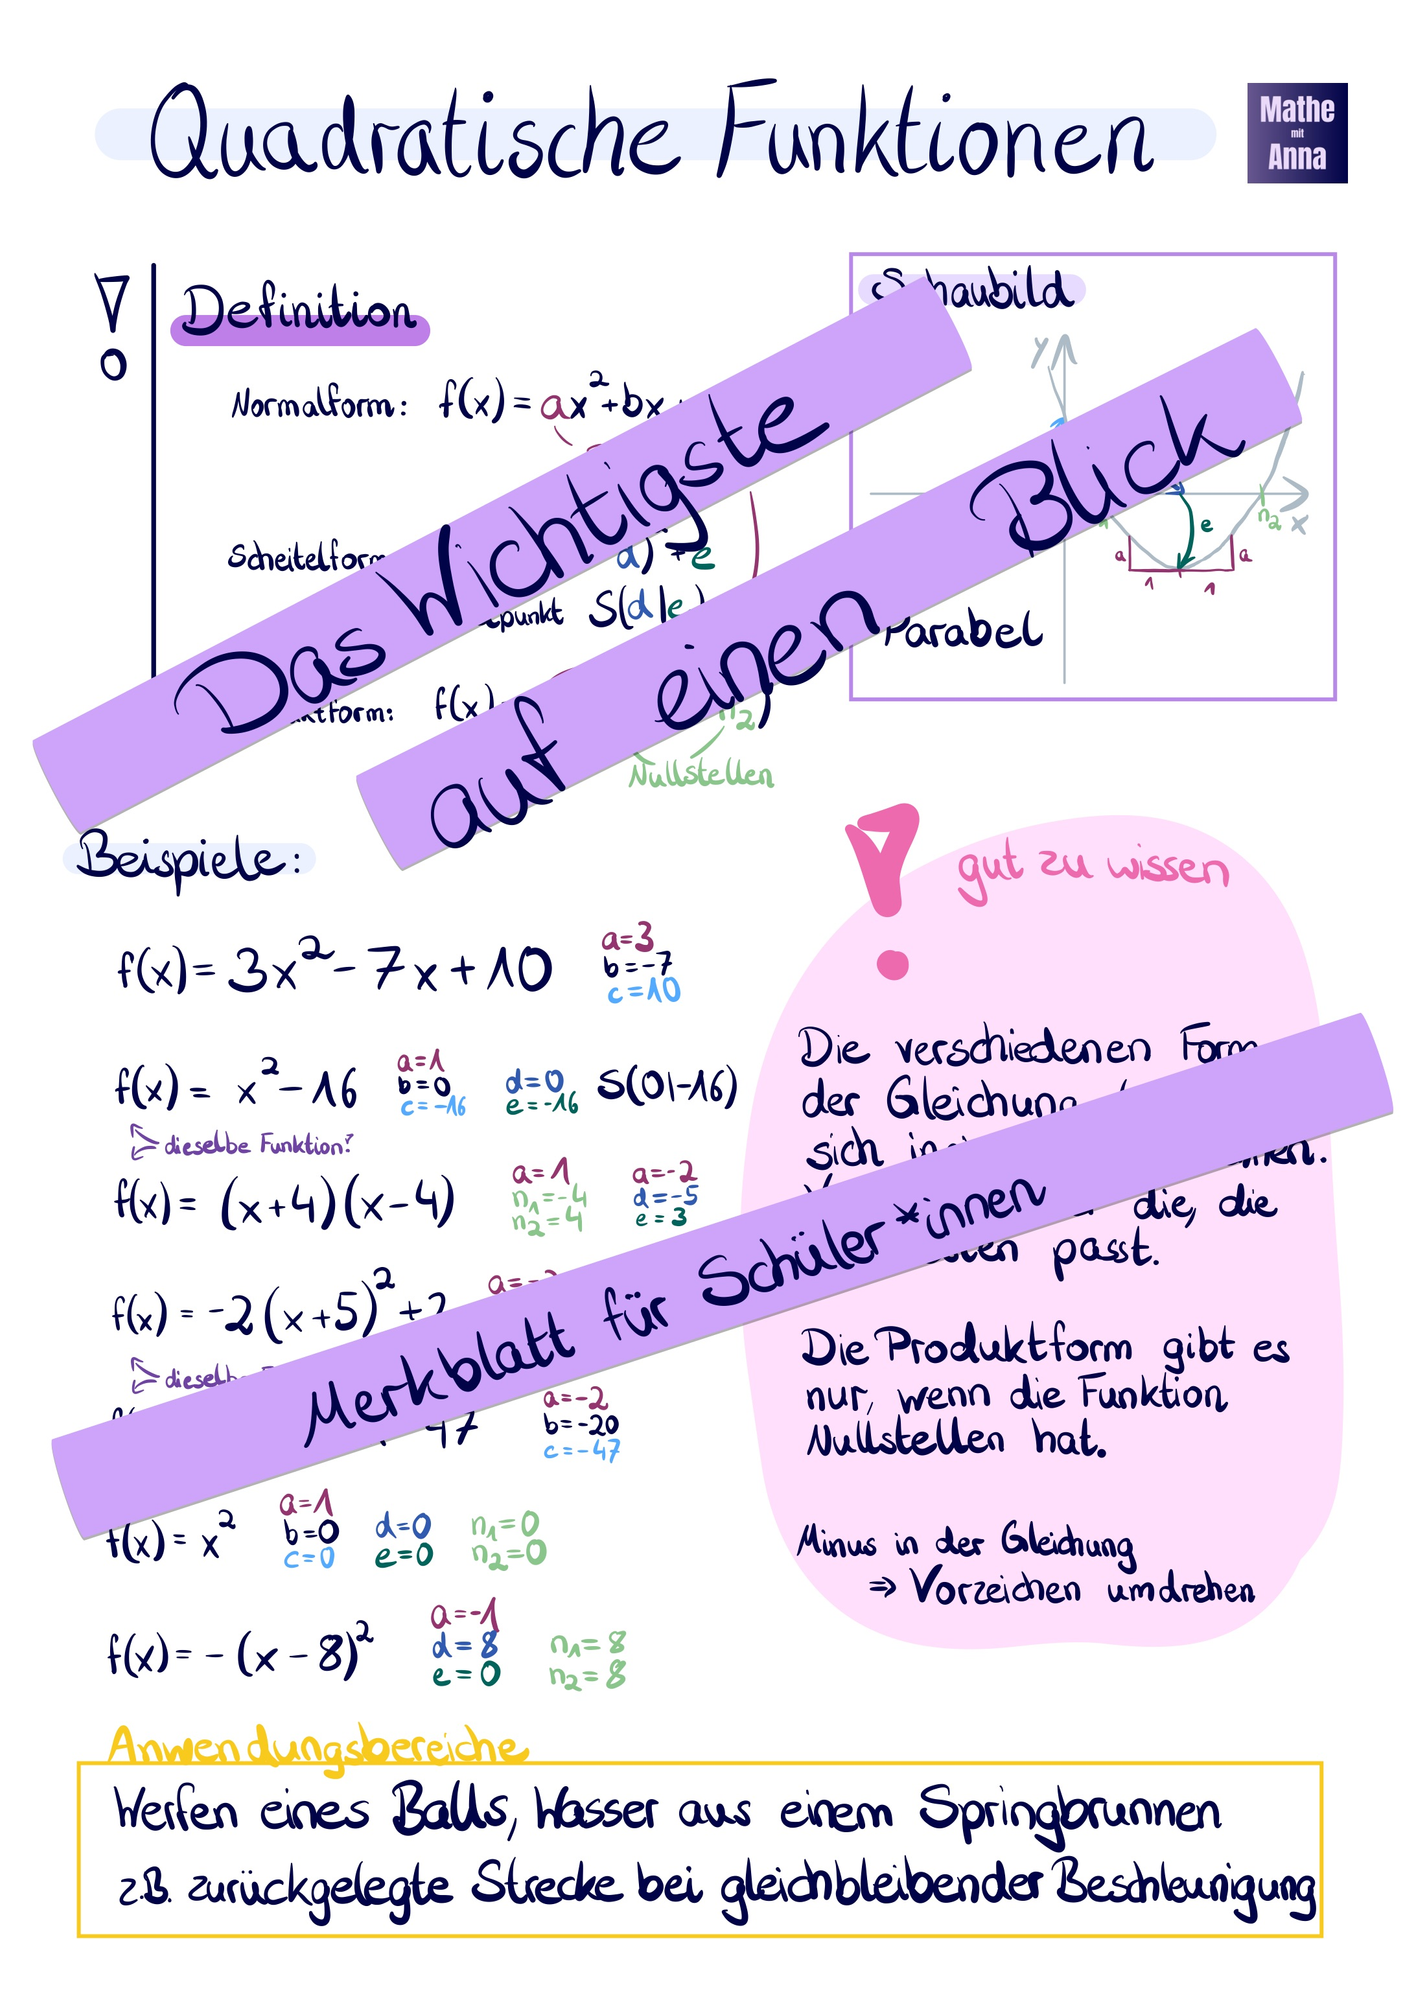 Quadratische Funktionen
Mathe
mit
Anna
!
Definition
Normalform: f(x) = ax²+bx
Scheitelform
d)² + e
punkt S(d|e)
ktform: f(x)
n₂)
Nullstellen
Schaubild
y
x
n₂
e
a
a
1
1
Parabel
Das Wichtigste
auf einen Blick
Beispiele:
f(x) = 3x² - 7x + 10
a=3
b=-7
c=10
f(x) = x² - 16
a=1
b=0
c=-16
d=0
e=-16
S(0|-16)
dieselbe Funktion!
f(x) = (x+4)(x-4)
a=1
n₁=-4
n₂=4
a=-2
d=-5
e=3
f(x) = -2(x+5)²+
a=-2
dieselbe
47
a=-2
b=-20
c=-47
f(x) = x²
a=1
b=0
c=0
d=0
e=0
n₁=0
n₂=0
f(x) = -(x-8)²
a=-1
d=8
e=0
n₁=8
n₂=8
! gut zu wissen
Die verschiedenen Form
der Gleichung
sich in
die, die
passt.
Die Produktform gibt es
nur, wenn die Funktion
Nullstellen hat.
Minus in der Gleichung
⇒ Vorzeichen umdrehen
Merkblatt für Schüler*innen
Anwendungsbereiche
Werfen eines Balls, Wasser aus einem Springbrunnen
z.B. zurückgelegte Strecke bei gleichbleibender Beschleunigung